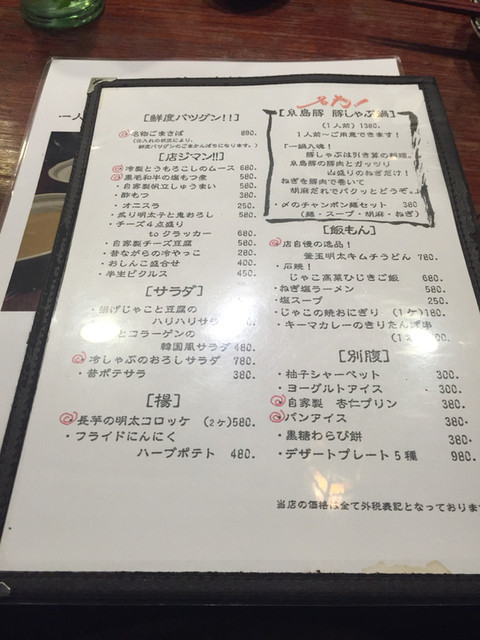 一人
[鮮度バツグン!!]
名物ごまさば 690.
(仕入れの状況により、
鮮度バツグンのごまかんぱちになります。)
[店ジマン!!]
冷製とうもろこしのムース 680.
黒毛和牛の塩もつ煮 580.
・自家製帆立しゅうまい 580.
・酢もつ 380.
・オニスラ 250.
・炙り明太子と鬼おろし 580.
・チーズ4点盛り
to クラッカー 680.
・自家製チーズ豆腐 580.
・昔ながらの冷やっこ 280.
・おしんこ盛合せ 400.
・半生ピクルス 450.
[サラダ]
・揚げじゃこと豆腐の
ハリハリサラ
とコラーゲンの
韓国風サラダ 480
冷しゃぶのおろしサラダ 780.
・昔ポテサラ 380.
[揚]
長芋の明太コロッケ (2ケ)580.
・フライドにんにく
ハーブポテト 480.
[糸島豚 豚しゃぶ鍋]
(1人前) 1380.
1人前~ご用意できます!
「一鍋入魂!
豚しゃぶは引き算の料理。
糸島豚の豚肉とガッツリ
山盛りのねぎだけ!
ねぎを豚肉で巻いて
胡麻だれでパクッとどうぞ。」
・〆のチャンポン麺セット 380.
(麺・スープ・胡麻・ねぎ)
[飯もん]
店自慢の逸品!
釜玉明太キムチうどん 780.
・石焼!
じゃこ高菜ひきご飯 680.
・ねぎ塩ラーメン 580.
・塩スープ 250.
・じゃこの焼おにぎり (1ケ)180.
・キーマカレーのきりたんぽ串
[別腹]
・柚子シャーベット 300.
・ヨーグルトアイス 300.
自家製 杏仁プリン 380.
パンアイス 380.
・黒糖わらび餅 380.
・デザートプレート5種 980.
当店の価格は全て外税表記となっております